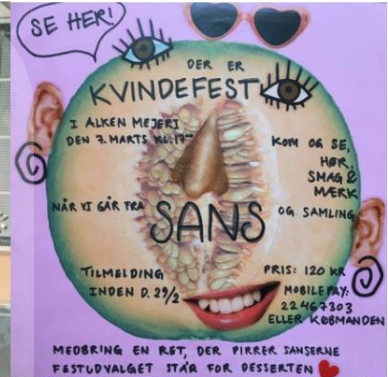 SE HER!
DER ER
KVINDEFEST
I ALKEN MEJERI
DEN 7. MARTS KL. 17⁰⁰
KOM OG SE,
HØR,
SMAG &
MÆRK
NÅR VI GÅR FRA
SANS
OG SAMLING
TILMELDING
INDEN D. 29/2
PRIS: 120 KR
MOBILEPAY:
22467303
ELLER KØBMANDEN
MEDBRING EN RET, DER PIRRER SANSERNE
FESTUDVALGET STÅR FOR DESSERTEN